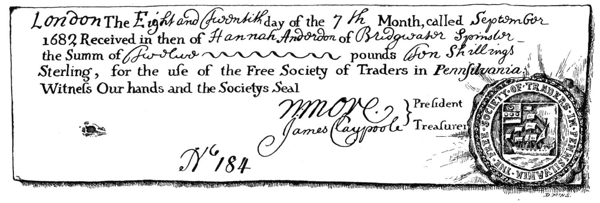 London The Eight and Twentith day of the 7th Month, called September
1682 Received in then of Hannah Anderdon of Bridgwater Spinster
the Summ of Twelve pounds Ten Shillings
Sterling, for the use of the Free Society of Traders in Pennsylvania;
Witness Our hands and the Societys Seal
N More } President
James Claypoole } Treasurer
No 184